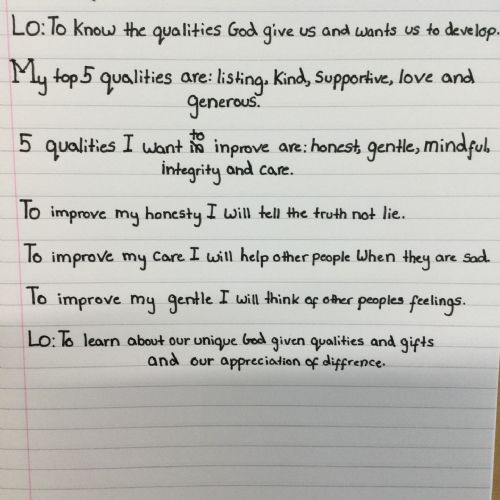 LO: To know the qualities God give us and wants us to develop.
My top 5 qualities are: listing, kind, supportive, love and
generous.
5 qualities I want to inprove are: honest, gentle, mindful,
integrity and care.
To improve my honesty I will tell the truth not lie.
To improve my care I will help other people when they are sad.
To improve my gentle I will think of other peoples feelings.
LO: To learn about our unique God given qualities and gifts
and our appreciation of diffrence.